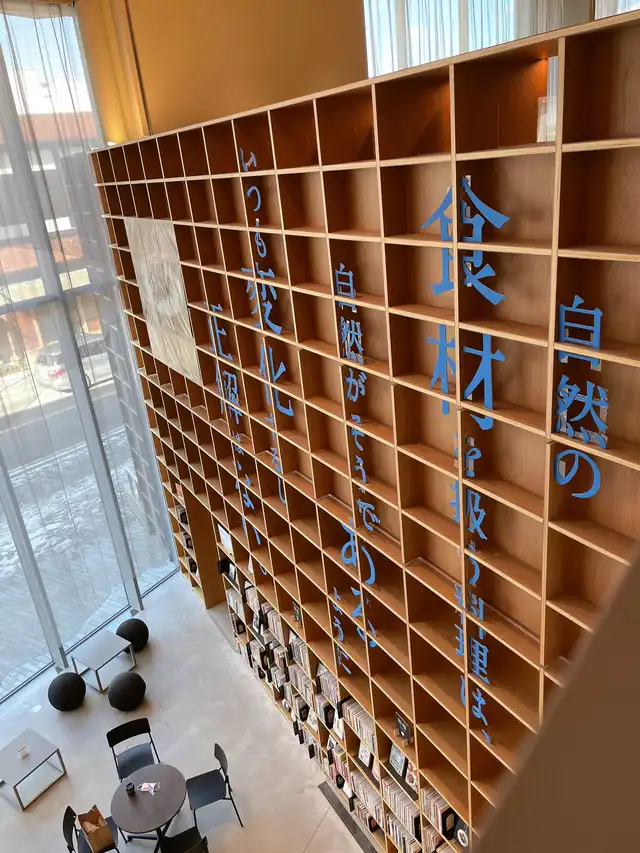 自然の
食材を扱う料理は、
自然がそうであるように
いつも変化するし
正解はない。